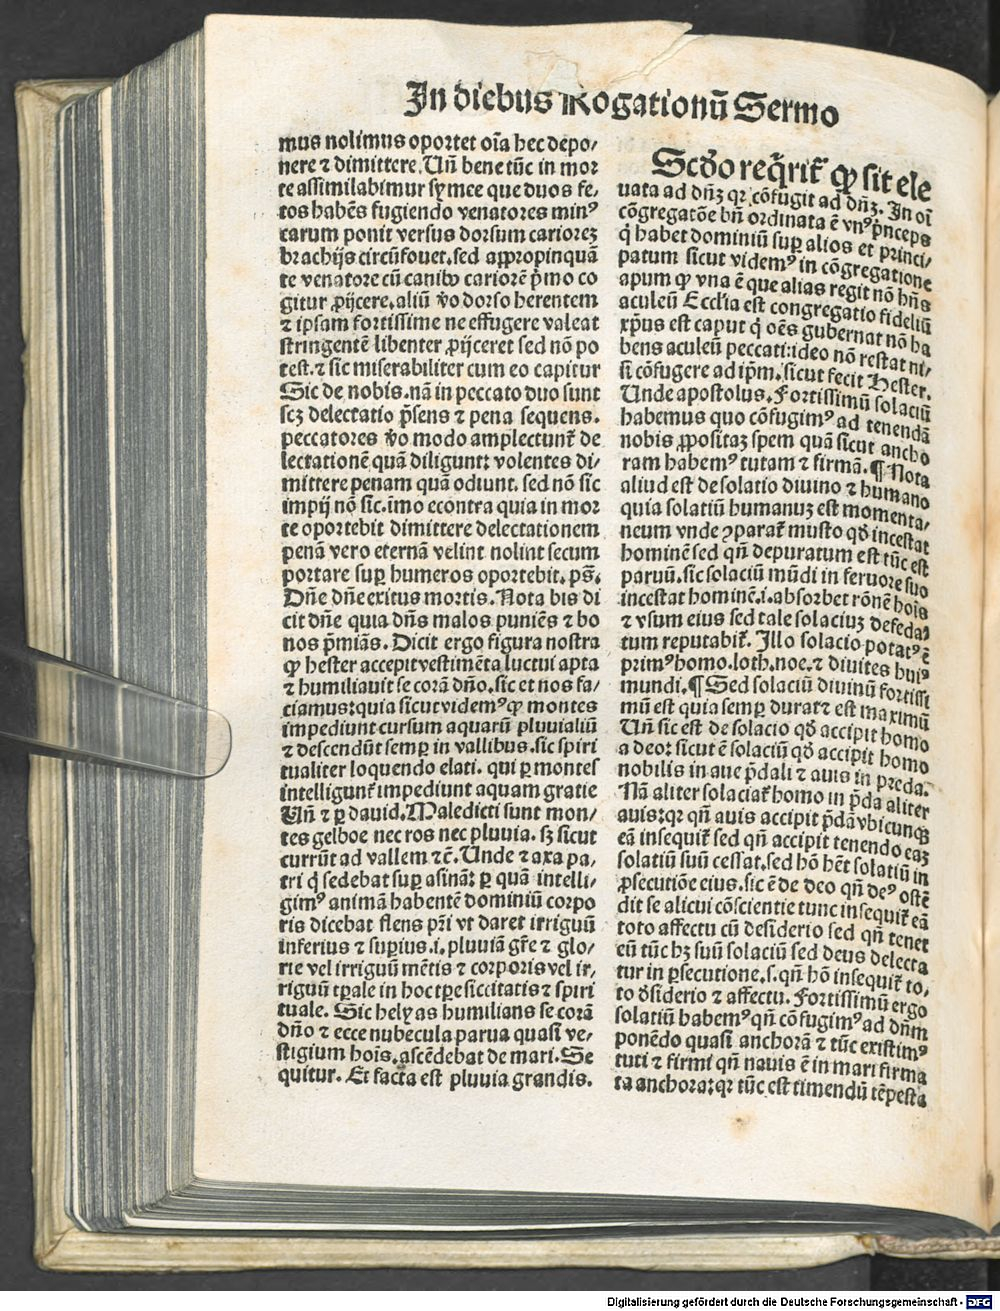 In diebus Rogationū Sermo
mus nolimus oportet oīa hec depo/
nere ⁊ dimittere. Un̄ bene tūc in mor
te assimilabimur symee que duos fe/
tos habēs fugiendo venatores minꝰ
carum ponit versus dorsum cariorez
brachijs circūfouet. sed appropinquā
te venatore cū canibꝰ cariorē p̄mo co
gitur ꝓijcere. aliū ṽo dorso herentem
⁊ ipsam fortissime ne effugere valeat
stringentē libenter ꝓijceret sed nō po
test. ⁊ sic miserabiliter cum eo capitur
Sic de nobis. nā in peccato duo sunt
scꝫ delectatio p̄sens ⁊ pena sequens.
peccatores ṽo modo amplectunt̄ de
lectationē quā diligunt: volentes di/
mittere penam quā odiunt. sed nō sic
impij nō sic. īmo econtra quia in mor
te oportebit dimittere delectationem
penā vero eternā velint nolint secum
portare suꝑ humeros oportebit. ps̄.
Dn̄e dn̄e exitus mortis. Nota bis di
cit dn̄e quia dn̄s malos puniēs ⁊ bo
nos p̄miās. Dicit ergo figura nostra
ꝙ hester accepit vestimēta luctui apta
⁊ humiliauit se corā dn̄o. sic et nos fa/
ciamus: quia sicut videmꝰ ꝙ montes
impediunt cursum aquarū pluuialiū
⁊ descendūt semꝑ in vallibus. sic spiri
tualiter loquendo elati. qui ꝑ montes
intelligunt̄ impediunt aquam gratie
Un̄ ⁊ ꝑ dauid. Maledicti sunt mon/
tes gelboe nec ros nec pluuia. sꝫ sicut
currūt ad vallem ⁊c̄. Unde ⁊ axa pa/
tri q̇ sedebat suꝑ asinā: ꝑ quā intelli/
gimꝰ animā habentē dominiū corpo
ris dicebat flens pr̄i vt daret irriguū
inferius ⁊ suꝑius. i. pluuiā gr̄e ⁊ glo/
rie vel irriguū mētis ⁊ corporis vel ir/
riguū tꝑale in hoc tꝑe siccitatis ⁊ spiri
tuale. Sic helyas humilians se corā
dn̄o ⁊ ecce nubecula parua quasi ve/
stigium hoīs. ascēdebat de mari. Se
quitur. Et facta est pluuia grandis.
Scd̄o req̇rit̄ ꝙ sit ele
uata ad dn̄ꝫ qꝛ cōfugit ad dn̄ꝫ. In oī
cōgregatōe bn̄ ordinata ē vnꝰ p̄nceps
q̇ habet dominiū suꝑ alios et princi/
patum sicut videmꝰ in cōgregatione
apum ꝙ vna ē que alias regit nō hn̄s
aculeū Eccl'ia est congregatio fideliū
xp̄us est caput q̇ oēs gubernat nō ha
bens aculeū peccati: ideo nō restat ni/
si cōfugere ad ip̄m. sicut fecit Hester.
Unde apostolus. Fortissimū solaciū
habemus quo cōfugimꝰ ad tenendā
nobis ꝓpositaꝫ spem quā sicut ancho
ram habemꝰ tutam ⁊ firmā. ¶ Nota
aliud est de solatio diuino ⁊ humano
quia solatiū humanuꝫ est momenta/
neum vnde ꝯparat̄ musto qd̄ incestat
hominē sed qn̄ depuratum est tūc est
paruū. sic solaciū mūdi in feruore suo
incestat hominē. i. absorbet rōnē hoīs
⁊ vsum eius sed tale solaciuꝫ defeda/
tum reputabit̄. Illo solacio potatꝰ ē
primꝰ homo. loth. noe. ⁊ diuites huiꝰ
mundi. ¶ Sed solaciū diuinū fortissi
mū est quia semꝑ durat ⁊ est maximū
Un̄ sic est de solacio qd̄ accipit homo
a deo: sicut ē solaciū qd̄ accipit homo
nobilis in aue p̄dali ⁊ auis in preda.
Nā aliter solaciat̄ homo in p̄da aliter
auis: qꝛ qn̄ auis accipit p̄dā vbicunqꝫ
eā insequit̄ sed qn̄ accipit tenendo eaꝫ
solatiū suū cessat. sed hō hēt solatiū in
ꝓsecutiōe eius. sic ē de deo qn̄ deꝰ ostē
dit se alicui cōscientie tunc insequit̄ eā
toto affectu cū desiderio sed qn̄ tenet
eū tūc hꝫ suū solaciū sed deus delecta
tur in ꝑsecutione. s. qn̄ hō insequit̄ to/
to d̄siderio ⁊ affectu. Fortissimū ergo
solatiū habemꝰ qn̄ cōfugimꝰ ad dn̄m
ponēdo quasi anchorā ⁊ tūc existimꝰ
tuti ⁊ firmi qn̄ nauis ē in mari firma
ta anchora: qꝛ tūc est timendū tēpesta
Digitalisierung gefördert durch die Deutsche Forschungsgemeinschaft - DFG